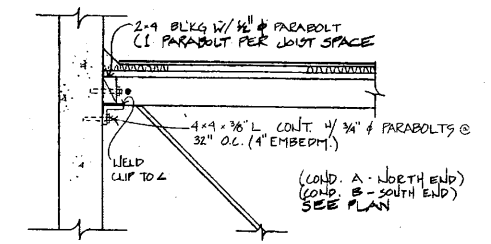 2x4 BLKG W/ ½" ϕ PARABOLT
(1 PARABOLT PER JOIST SPACE
4x4 x 3/8" L CONT. W/ 3/4" ϕ PARABOLTS @
32" O.C. (4" EMBEDM.)
WELD
CLIP TO L
(COND. A - NORTH END)
(COND. B - SOUTH END)
SEE PLAN